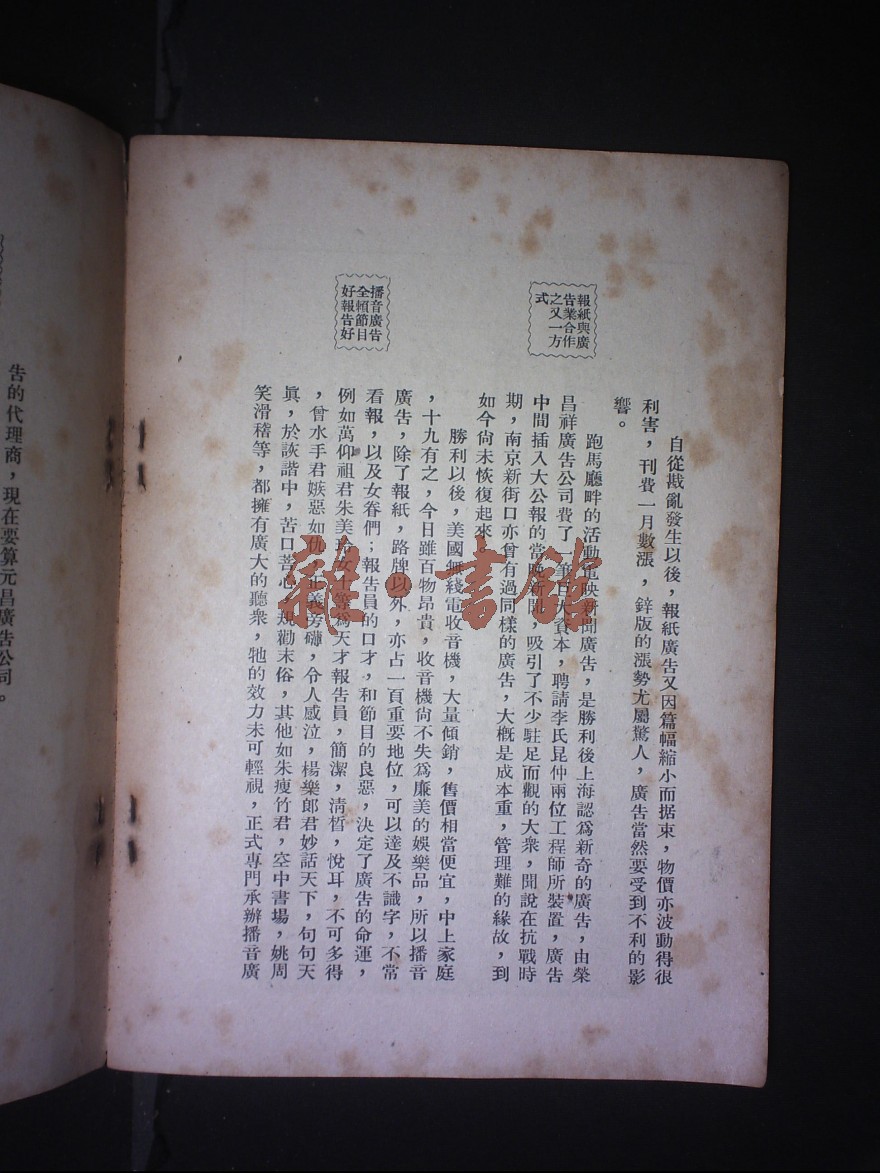 報紙與廣
告業合作
之又一方
式
自從戡亂發生以後，報紙廣告又因篇幅縮小而拮束，物價亦波動得很
利害，刊費一月數漲，鋅版的漲勢尤屬驚人，廣告當然要受到不利的影
響。
跑馬廳畔的活動電映新聞廣告，是勝利後上海認爲新奇的廣告，由榮
昌祥廣告公司費了一筆巨大資本，聘請李氏昆仲兩位工程師所裝置，廣告
中間插入大公報的當晚新聞，吸引了不少駐足而觀的大衆，聞說在抗戰時
期，南京新街口亦曾有過同樣的廣告，大概是成本重，管理難的緣故，到
如今尙未恢復起來。
播音廣告
全頼節目
好報告好
勝利以後，美國無綫電收音機，大量傾銷，售價相當便宜，中上家庭
，十九有之，今日雖百物昂貴，收音機尙不失爲廉美的娛樂品，所以播音
廣告，除了報紙，路牌以外，亦占一頁重要地位，可以達及不識字，不常
看報，以及女眷們；報告員的口才，和節目的良惡，決定了廣告的命運，
例如萬仰祖君朱美玲女士等爲天才報告員，簡潔，淸晳，悅耳，不可多得
，曾水手君嫉惡如仇，正義旁礴，令人感泣，楊樂郎君妙話天下，句句天
眞，於詼諧中，苦口苦心，規勸末俗，其他如朱瘦竹君，空中書場，姚周
笑滑稽等，都擁有廣大的聽衆，牠的效力未可輕視，正式專門承辦播音廣
告的代理商，現在要算元昌廣告公司。
雜·書館